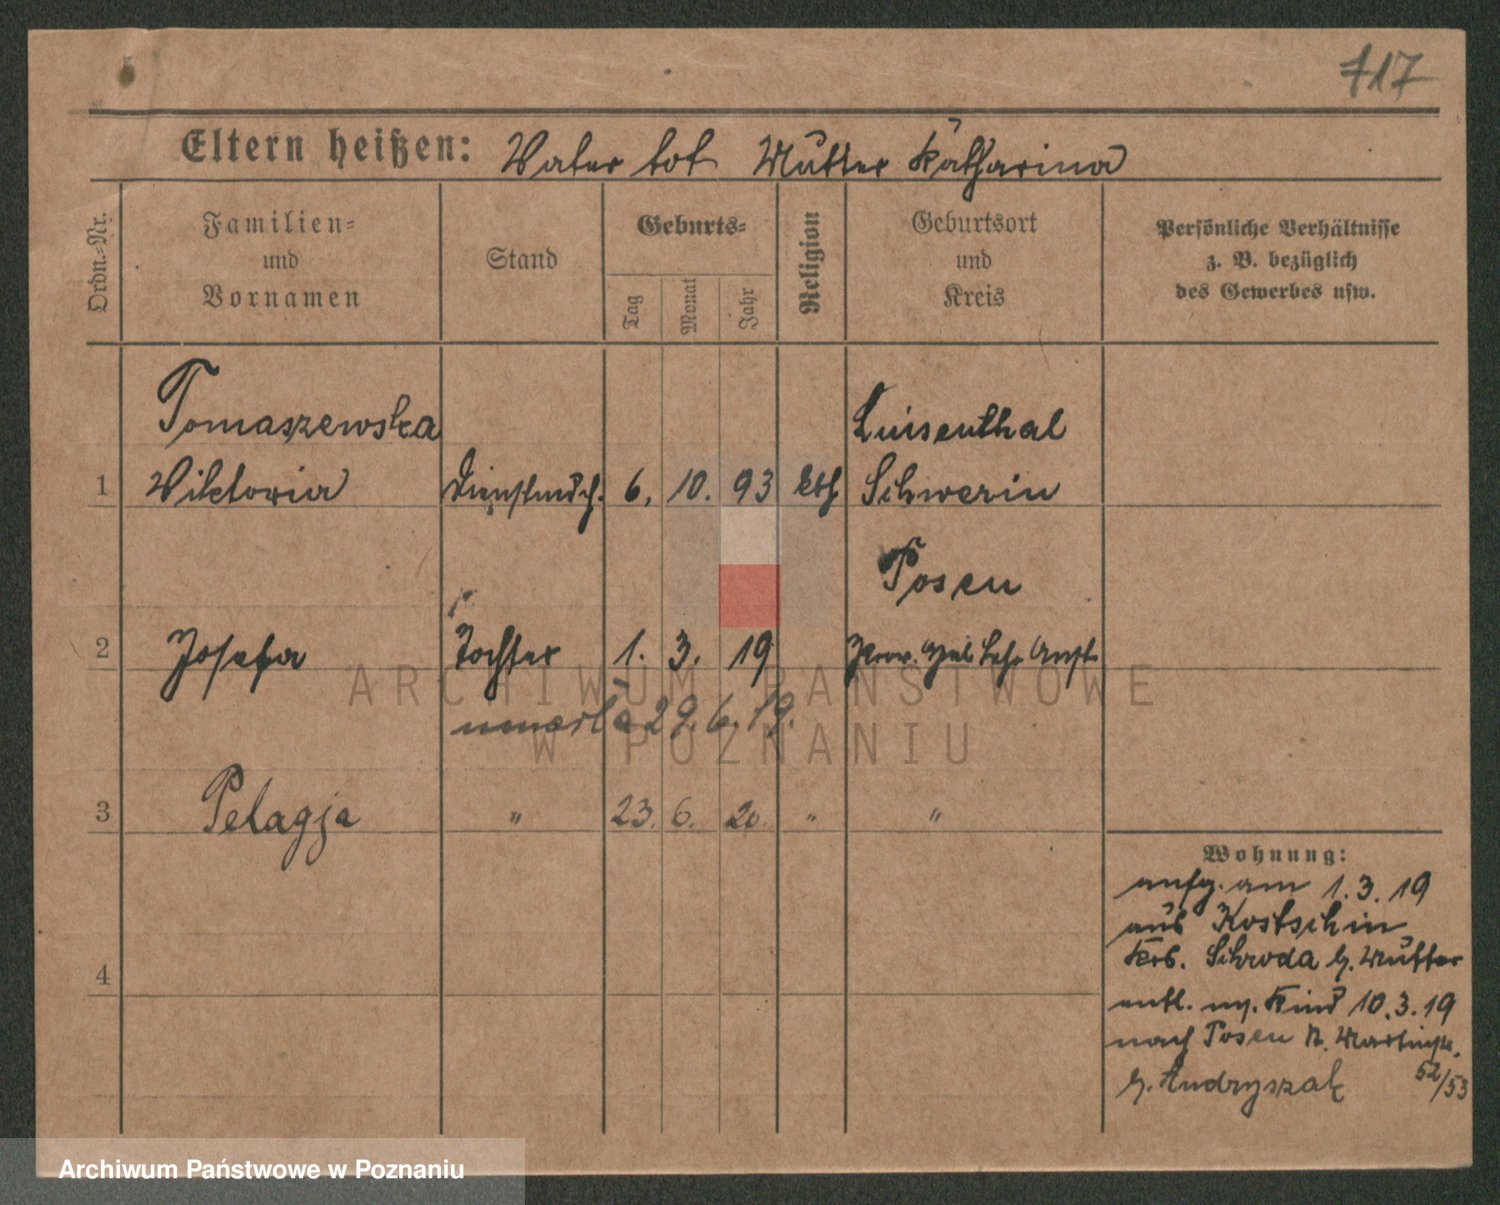 717
Eltern heißen: Vater tot Mutter Katharina
Ordn.-Nr.
Familien-
und
Vornamen
Stand
Geburts-
Tag
Monat
Jahr
Religion
Geburtsort
und
Kreis
Persönliche Verhältnisse
z. B. bezüglich
des Gewerbes usw.
Tomaszewska Luisenthal
1 Viktoria Dienstmdch. 6. 10. 93 kth Schwerin
Posen
2 Josefa Tochter 1. 3. 19 Prov. Heb. Lehr Anst.
umarła 29. 6. 19.
3 Pelagja " 23. 6. 20 " "
4
Wohnung:
aufg. am 1.3.19
aus Kostschin
Krs. Schroda b. Mutter
entl. m. Kind 10.3.19
nach Posen St. Martinstr.
b. Andryszak 52/53
ARCHIWUM PAŃSTWOWE
W POZNANIU
Archiwum Państwowe w Poznaniu